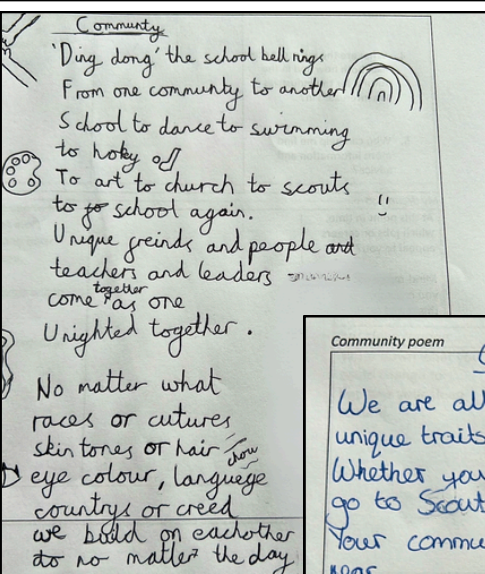 Communty
'Ding dong' the school bell rings
From one communty to another
School to dance to swimming
to hoky
To art to church to scouts
to go school again.
Unique greinds and people and
teachers and leaders
come together as one
Unighted together.
No matter what
races or cutures
skin tones or hair
eye colour, languege
countrys or creed
we build on eachother
to no matter the day
Community poem
We are all
unique traits
Whether you
go to Scout
Your commu